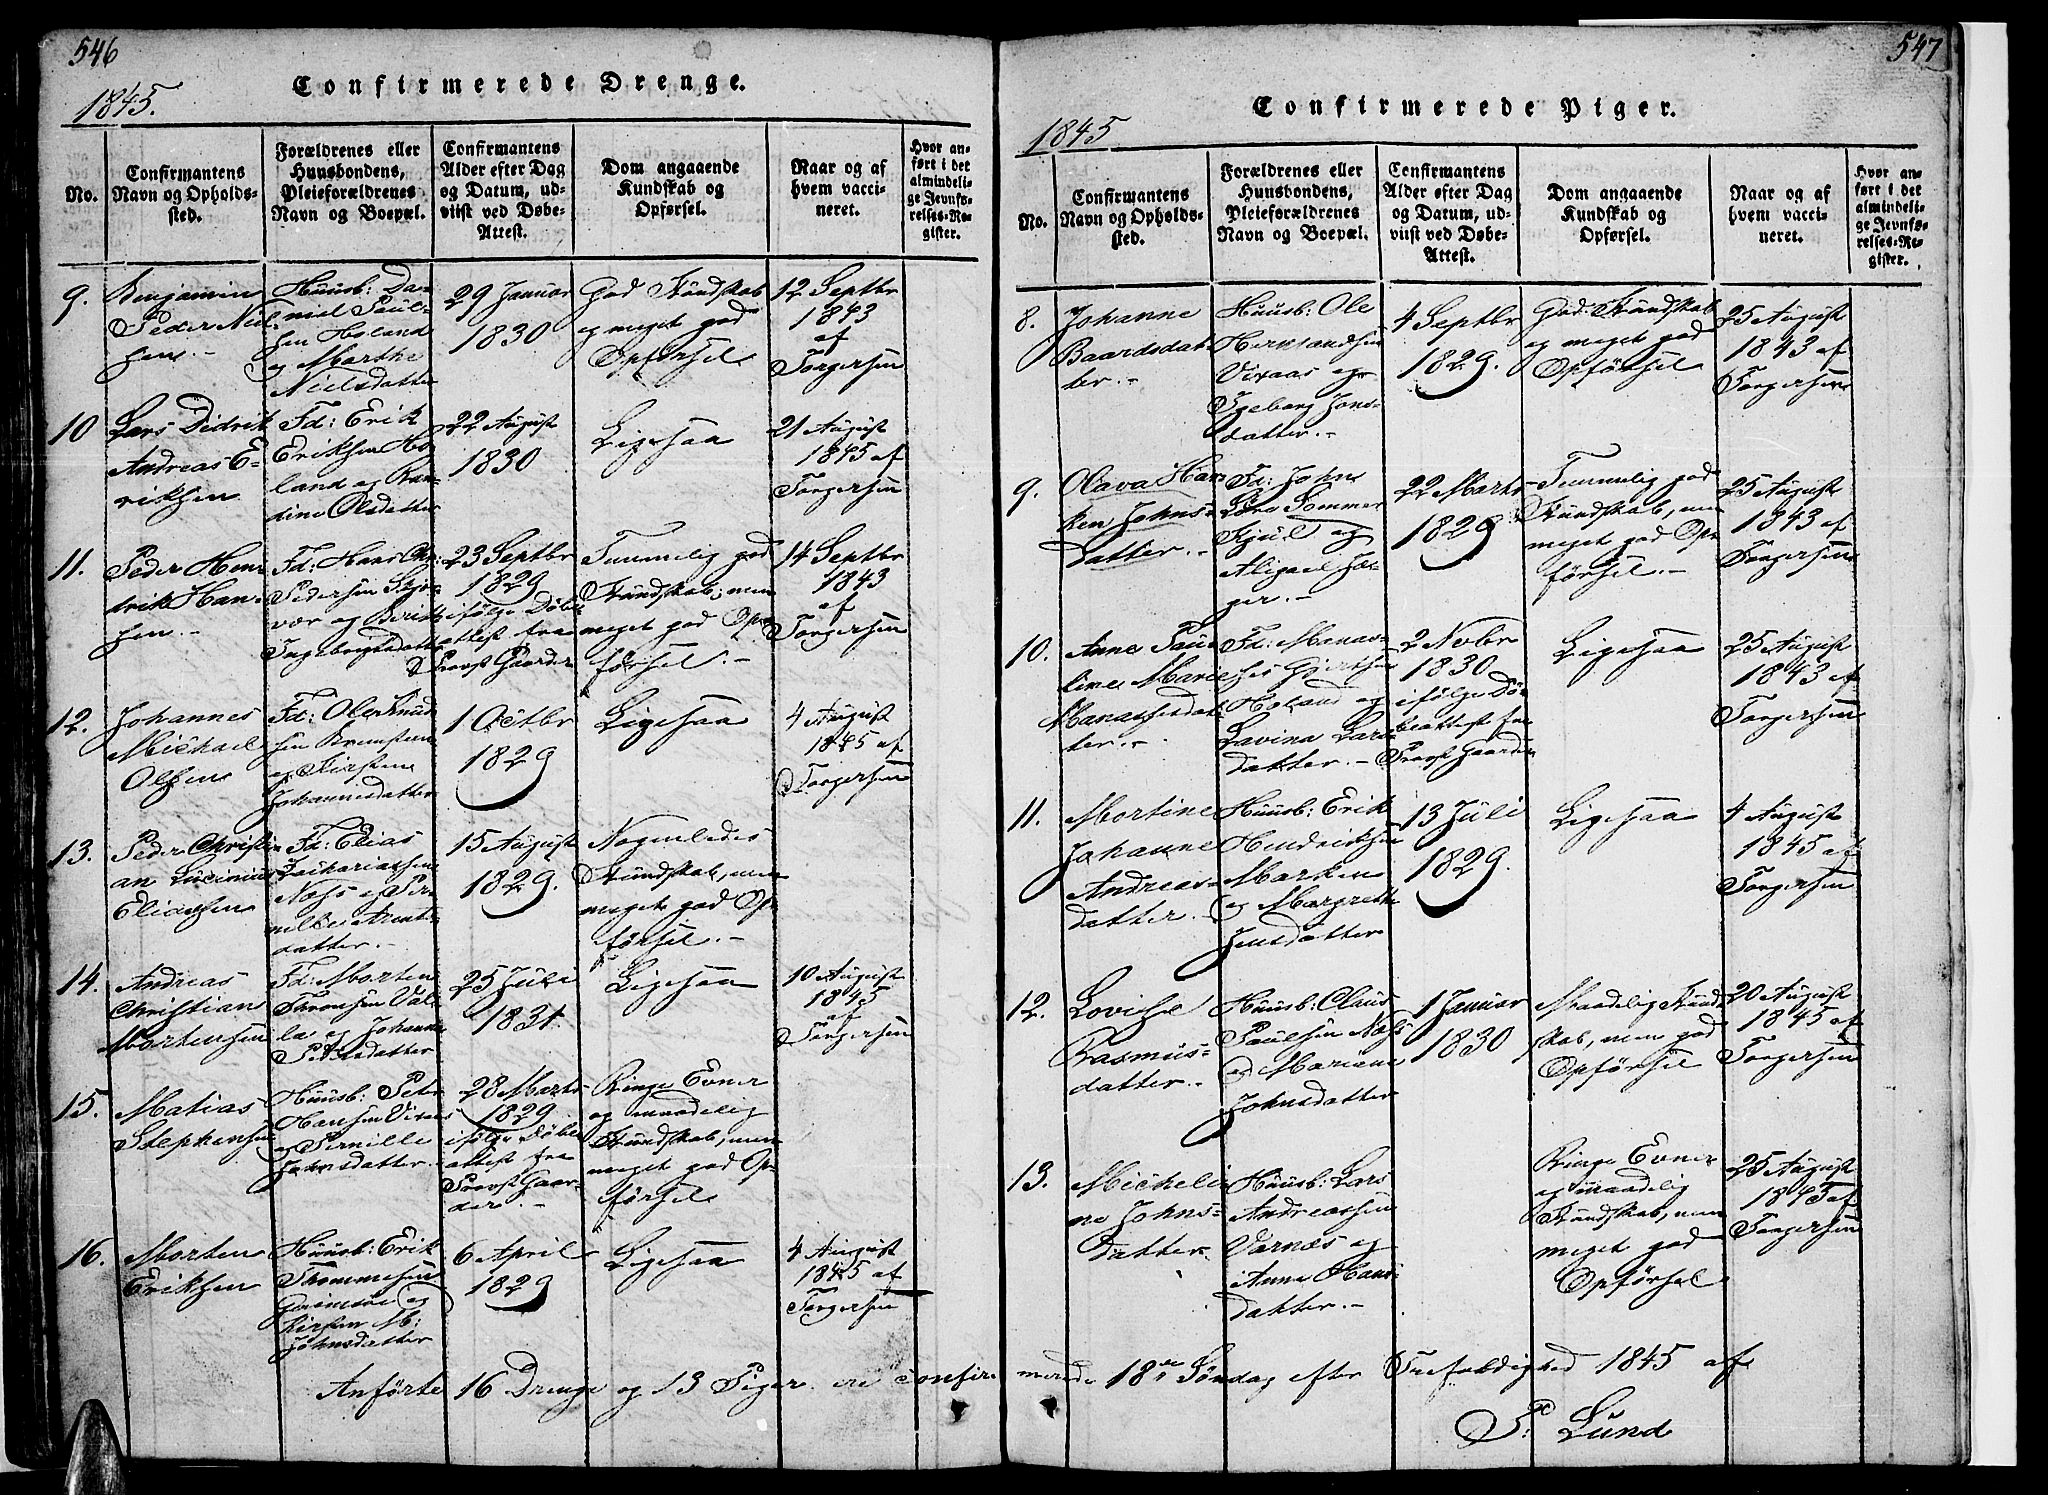 546
Confirmerede Drenge.
1845.
No.
Confirmantens
Navn og Opholds-
sted.
Forældrenes eller
Huusbondens,
Pleieforældrenes
Navn og Boepæl.
Confirmantens
Alder efter Dag
og Datum, ud-
viist ved Døbe-
Attest.
Dom angaaende
Kundskab og
Opførsel.
Naar og af
hvem vacci-
neret.
Hvor an-
ført i det
almindeli-
ge Jevnfø-
relses-Re-
gister.
9.
Benjamin
Peder Niel-
sen.-
Huusb: Da-
niel Paul-
sen Holand
og Marthe
Nielsdatter
29 Januar
1830
God Kundskab
og meget god
Opførsel
12 Septbr
1843
af
Torgersen
10
Lars Didrik
Andreas E-
riksen
Fd: Erik
Eriksen Ho-
land og Ran-
dine Olsdatter
22 August
1830
Ligesaa
21 August
1845 af
Torgersen
11.
Peder Hen-
drik Han-
sen.-
Fd: Hans Chr:
Pedersen
vær og Berith
Ingebrigtsdatter
23 Septbr
1829
ifølge Døbe-
attest fra
Provst Gaarder
Temmelig god
Kundskab, men
meget god Op-
førsel.-
14 Septbr
1843
af
Torgersen
12.
Johannes
Michael
Olsen
Fd: Ole Knud-
sen
og Kirsten
Johannesdatter
1 Octbr
1829
Ligesaa
4 August
1845 af
Torgersen
13.
Peder Christi-
an
Eliassen
Fd: Elias
Zachariassen
Næss og Per-
nille Arent-
datter.-
15 August
1829.
Nogenledes
Kundskab, men
meget god Op-
førsel.-
14.
Andreas
Christian
Mortensen
Fd: Morten
Thomsen Val-
la og Johanna
Pedersdatter
25 Juli
1831.
Ligesaa
10 August
1845
af
Torgersen
15.
Matias
Stephensen
Huusb: Peter
Hansen Vixaas
og Pernille
Johnsdatter.
28 Marts
1829
ifølge Døbe-
attest fra
Provst Gaar-
der.-
Ringe Evner
og maadelig
Kundskab, men
meget god Op-
førsel
16.
Morten
Eriksen
Huusb: Erik
Thommesen
og
Kirsten M:
Johnsdatter
6 April
1829
Ligesaa
4 August
1845 af
Torgersen
547
Confirmerede Piger.
1845
No.
Confirmantens
Navn og Opholds-
sted.
Forældrenes eller
Huusbondens,
Pleieforældrenes
Navn og Boepæl.
Confirmantens
Alder efter Dag
og Datum, ud-
viist ved Døbe-
Attest.
Dom angaaende
Kundskab og
Opførsel.
Naar og af
hvem vacci-
neret.
Hvor an-
ført i det
almindeli-
ge Jevnfø-
relses-Re-
gister.
8.
Johanne
Baardsdat-
ter.-
Huusb: Ole
Hernlandsen
Vixaas og
Igeborg Jons-
datter.-
4 Septbr
1829.
God Kundskab
og meget god
Opførsel
25 August
1843 af
Torgersen
9.
Olava Han-
ken Johns-
datter.-
Fd: John
Sommer
og
Abigael Hol-
ger.-
22 Marts
1829
Temmelig god
Kundskab, men
meget god Op-
førsel.-
25 August
1843 af
Torgersen
10.
Anne Pau-
line Marie
Manassesdat-
ter.-
Fd: Manas-
ses Gjertsen
Holand og
Lavina Lars-
datter.-
2 Novbr
1830
ifølge Dø-
beattest fra
Provst Gaarder
Ligesaa
25 August
1843 af
Torgersen
11.
Mortine
Johanne
Andreas-
datter.-
Huusb: Erik
Hendriksen
Marken
og Margrethe
Jensdatter
13 Juli
1829.
Ligesaa
4 August
1845 af
Torgersen
12.
Lovise
Rasmus-
datter.-
Huusb: Claus
Paulsen Næss
og Mariane
Johnsdatter
1 Januar
1830
Maadelig Kund-
skab, men god
Opførsel
20 August
1845 af
Torgersen
13.
Micheli-
ne Johns-
datter.
Huusb: Lars
Andreassen
Varnæs og
Anne Hans-
datter.-
Ringe Evner
og maadelig
Kundskab, men
meget god
Opførsel
25 August
1843 af
Torgersen
Anførte 16 Drenge og 13 Piger ere confirmerede 18de Søndag efter Trefoldighed 1845 af
P: Lund